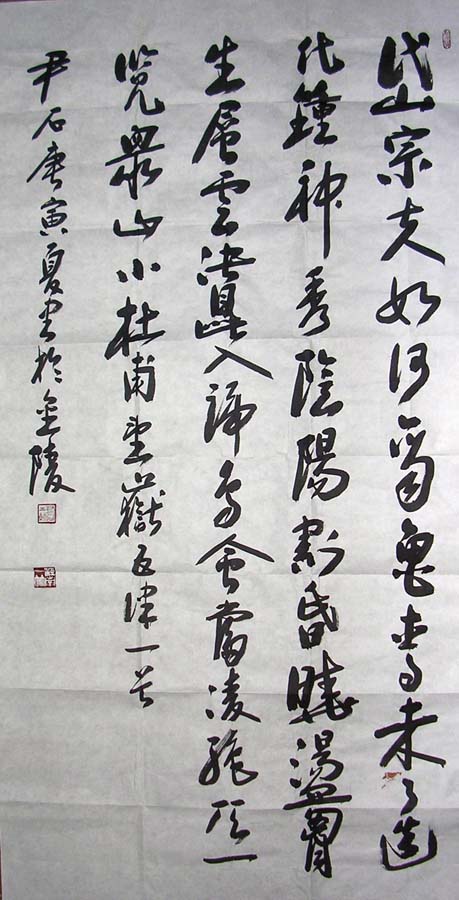 岱宗夫如何齊魯青未了造
化鍾神秀陰陽割昏曉盪胷
生層雲決眥入歸鳥會當凌絕頂一
覽眾山小杜甫望嶽五律一首
尹石庚寅夏書於金陵